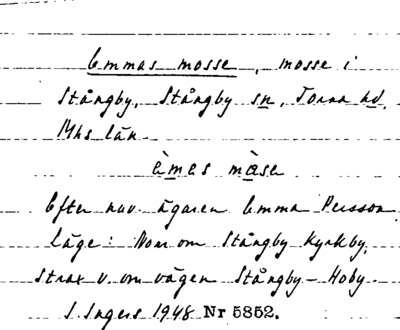 Emmas mosse, mosse i
Stångby, Stångby sn, Torna hd,
Mhs län.
èmes màse
Efter nuv. ägaren Emma Persson.
Läge: Norr om Stångby Kyrkby,
strax v. om vägen Stångby - Hoby.
S. Ingers 1948 Nr 5852.